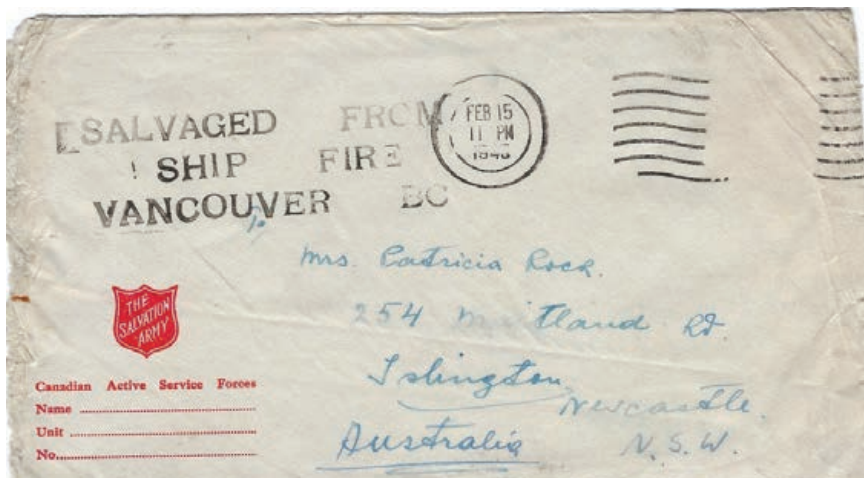 SALVAGED FROM
SHIP FIRE
VANCOUVER BC
FEB 15
11 PM
To
Mrs. Patricia Rock.
254 Maitland Rd.
Islington
Newcastle.
Australia N.S.W.
THE
SALVATION
ARMY
Canadian Active Service Forces
Name
Unit
No.